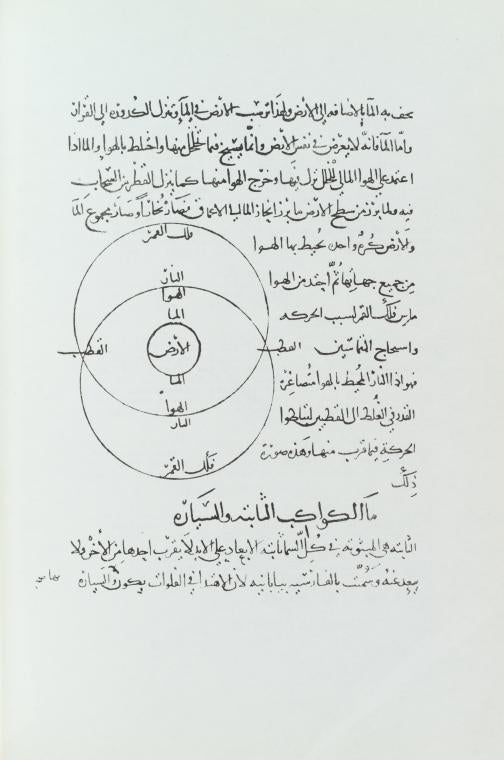 يحف به الماء بالاضافه الى الارض ولهذا رسب الارض في الماء وتنزل الكدورة الى القرار
واما الماء فانه لا يغرض في نفس الارض وانما يسيح فيما تخلخل منها واختلط بالهوا والماء اذا
اعتمد على الهوا المالى للخلل نزل فيها وخرج الهوا منها كما ينزل القطر من السحاب
فيه ولما برز من سطح الارض ما برز انحاز الما الى الاعماق فصار بحاراً وصار مجموع الما
والارض كرة واحدة يحيط بها الهوا
من جميع جهاتها ثم احتد من الهوا
ماس فلك القمر لسبب الحركه
واسحاج المتماسين
فهو اذا النار المحيط بالهوا متصاغرة
القدر في الغلط الى القطبين لتباطوا
الحركة فيما قرب منها وهذه صورة
ذلك
فلك القمر
النار
الهوا
الما
القطب
الارض
القطب
الما
الهوا
النار
فلك القمر
ما الكواكب الثابته والسيارة
الثابته هي المبثوثه في كل السما ثابته الابعاد على الابد لا يقرب احدها من الآخر ولا
يبعد عنه وسميت بالفارسيه بيابانيه لان الاهتدا في الفلوات يكون والسيارة
بها هي